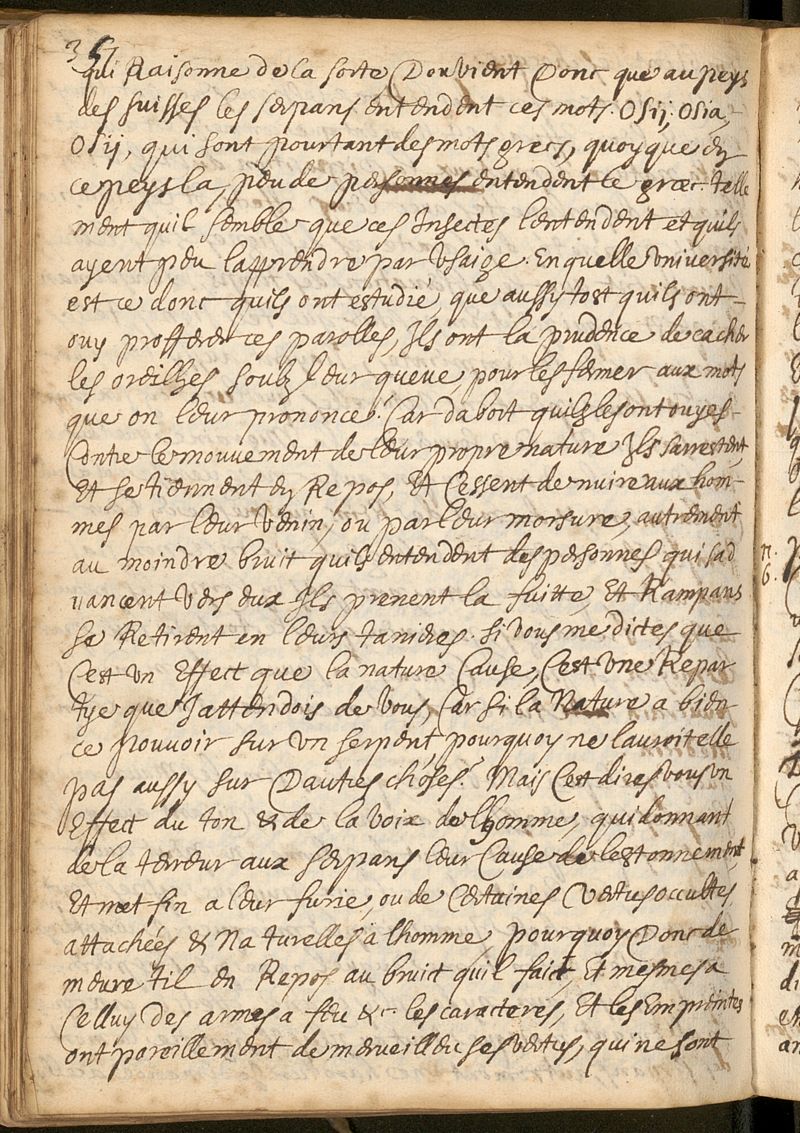 35
qui Raisonne de la sorte Dou vient Donc que au peys
des suisses les serpans entendent ces mots. Osij, Osia,
Osij, qui sont pourtant des mots grecs, quoyque en
ce peys la, peu de personnes entendent le græc. telle
ment quil semble que ces Insectes lentendent et quils
ayent peu lapprendre par usaige. En quelle université
est ce donc quils ont estudié, que aussy tost quils ont
ouy profferer ces parolles, Ils ont la prudence de cacher
les oreilhes soubz leur queue, pour les fermer aux mots
que on leur prononce. Car dabort quilz les ont ouyes
Contre le mouvement de leur propre nature Ils sarrestent
Et se tiennent en Repos, Et Cessent de nuire aux hom-
mes par leur venin, ou par leur morsure, autrement
au moindre bruit quils entendent des personnes qui sad
vancent vers eux Ils prenent la fuitte, Et Rampans
se Retirent en leurs tanieres. si vous me dictes que
C'est un Effect que la nature Cause, C'est une Repar
tye que Jattendois de vous, Car si la Nature a bien
ce pouvoir sur un serpent pourquoy ne lauroit elle
pas aussy sur Dautres choses? Mais C'est dires vous un
Effect du ton & de la voix de lhomme, qui donnant
de la terreur aux serpans leur Cause de lestonnement,
Et met fin a leur furie, ou de Certaines vertus occultes,
attachées & Naturelles a lhomme, pourquoy Donc de
meure til en Repos au bruit quil faict, Et mesmes a
Celluy des armes a feu &c. les caracteres, Et les Empreintes
ont pareillement de merveilleuses vertus, qui ne sont
n.
6.